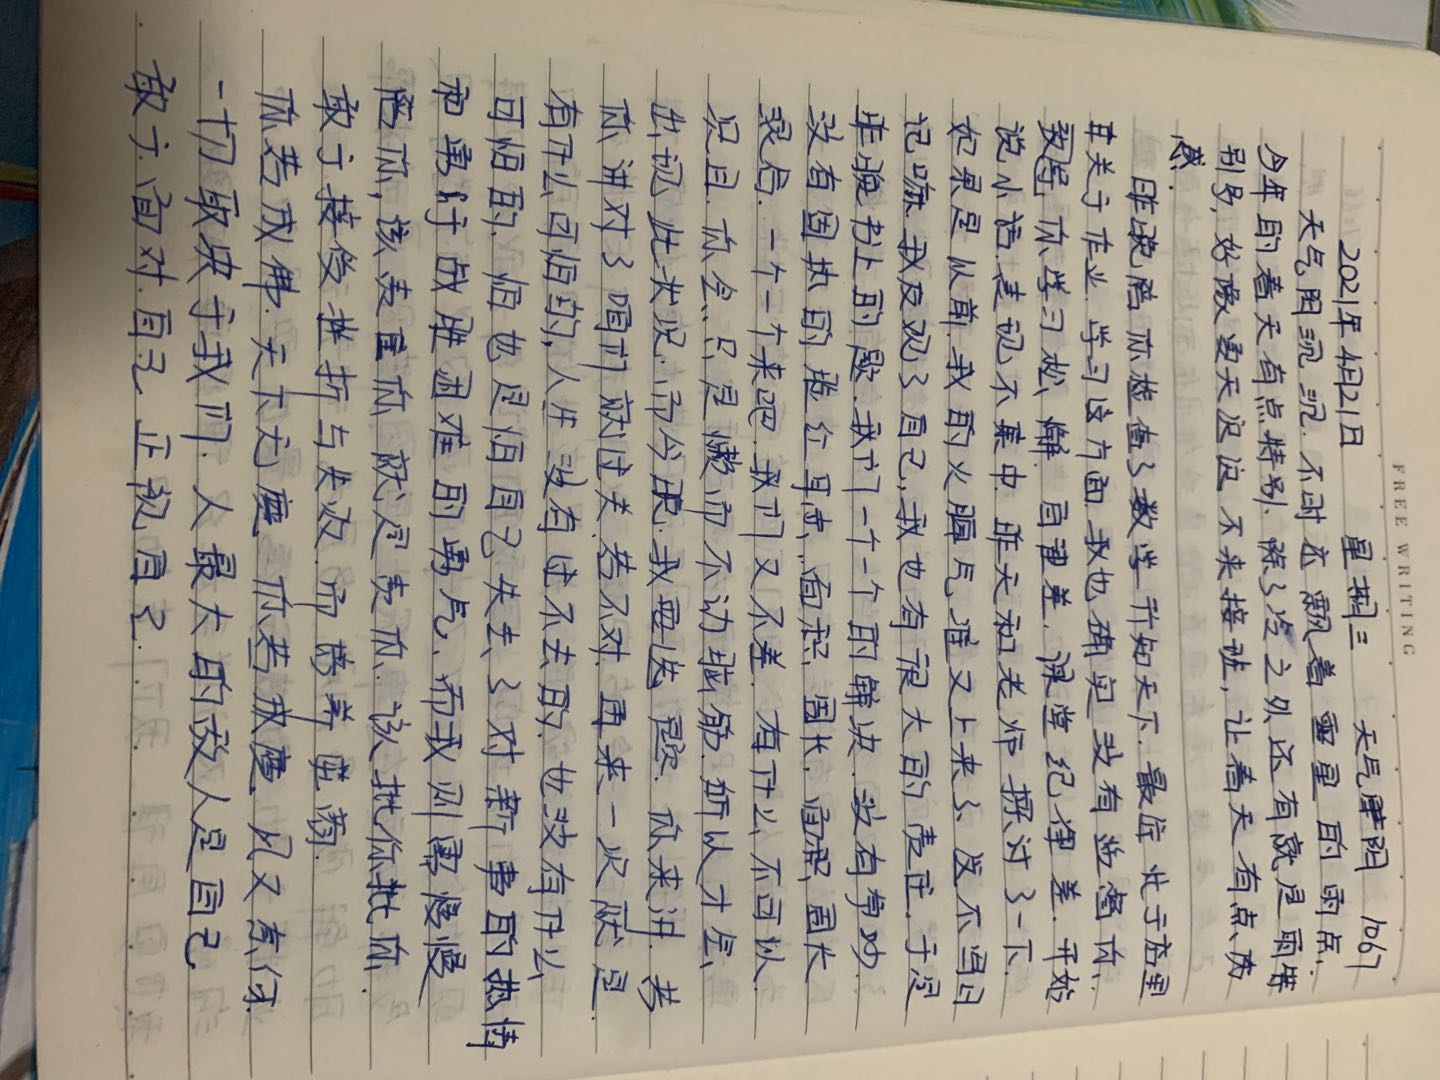 FREE WRITING
2021年4月21日 星期三 天气 阴 1067
天气阴沉沉.不时还飘着零星的雨点.
今年的春天有点特别.除了冷之外还有就是雨特
别多,好像夏天迟迟不来接班,让春天有点疲
惫.
昨晚陪你检查了数学 才知天下.最近 处于放空
其关于作业.学习这方面.我也确实没有监督你.
致导.你学习松懈.自律差.课堂纪律差.开始
说小话.走神不集中.昨天和老师探讨了一下.
如果是从前.我的火脾气准又上来了.这不写日
记嘛.我反观了自己,我也有很大的责任.于是
昨晚扯上的题.我们一个一个的解决.没有争吵.
没有固执的脸红耳赤.面积.周长.面积.周长
混怎.一个一个来吧.我们又不差.有什么不可以.
况且.你会.只是懒而不动脑筋.所以才会
出现此状况.而今晚.我要选题.你来讲.考
你讲对了咱们就过关.若不对.再来一次.就是
有什么可怕的,人生没有过不去的.也没有什么
可怕的.怕也是怕自己失去了对新事的热情
和勇于战胜困难的勇气.而我则需慢慢
陪你,该责怪你就是责你.该批你批你.
敢于接受挫折与失败.而 养 颜.
你若成佛.天下无魔.你若成魔.风又奈何.
一切取决于我们.人最大的敌人是自己.
敢于面对自己.正视自己.